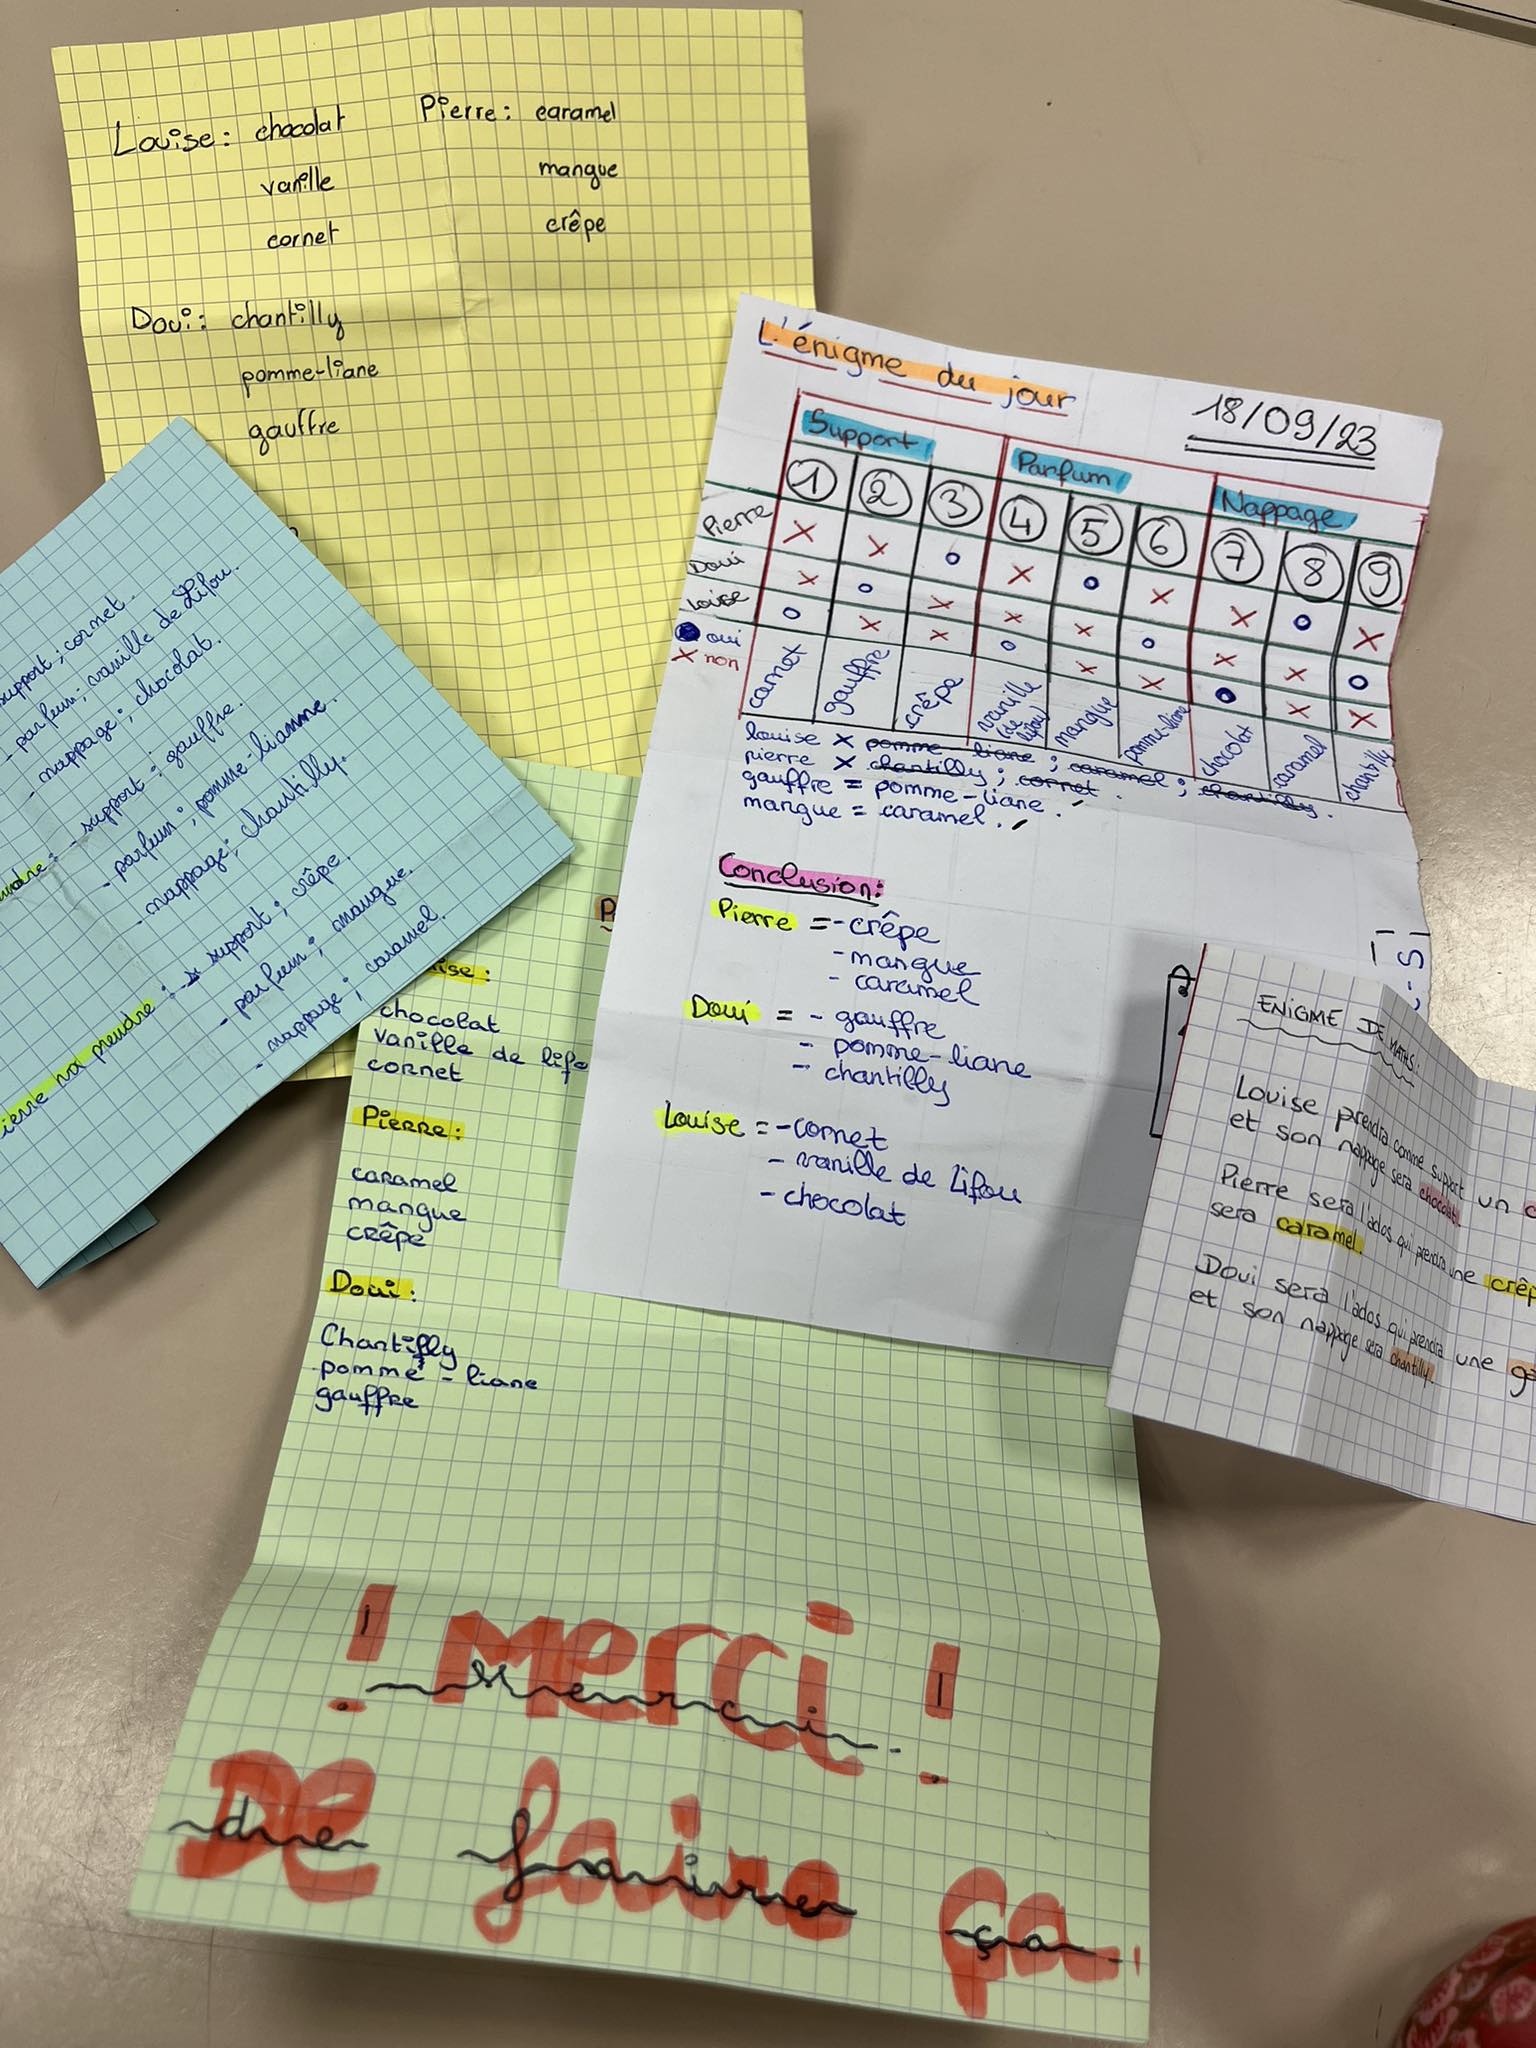 Louise : chocolat
vanille
cornet
Pierre : caramel
mangue
crêpe
Doui : chantilly
pomme-liane
gauffre
support ; cornet.
- parfum ; vanille de Lifou.
- nappage ; chocolat.
- support ; gauffre.
- parfum ; pomme-lianne.
- nappage ; chantilly.
ierre va prendre : - support ; crêpe.
- parfum ; mangue.
- nappage ; caramel.
L'énigme du jour
18/09/23
Support Parfum Nappage
1 2 3 4 5 6 7 8 9
Pierre X X o X o X X o X
Doui X o X X X o X X o
Loise o X X o X X o X X
oui
X non
cornet gauffre crêpe vanille (de lifou) mangue pomme-liane chocolat caramel chantilly
louise X pomme-liane ; caramel ; chantilly.
pierre X chantilly ; cornet.
gauffre = pomme-liane.
mangue = caramel.
Conclusion :
Pierre = - crêpe
- mangue
- caramel
Doui = - gauffre
- pomme-liane
- chantilly
Louise = - cornet
- vanille de Lifou
- chocolat
ise :
chocolat
vanille de lifo
cornet
Pierre :
caramel
mangue
crêpe
Doui :
Chantilly
pomme-liane
gauffre
! Merci !
Merci
De faire ça !
de faire ça
ENIGME DE MATHS :
Louise prendra comme support un c
et son nappage sera chocolat.
Pierre sera l'ados qui prendra une crêp
sera caramel.
Doui sera l'ados qui prendra une ga
et son nappage sera chantilly.